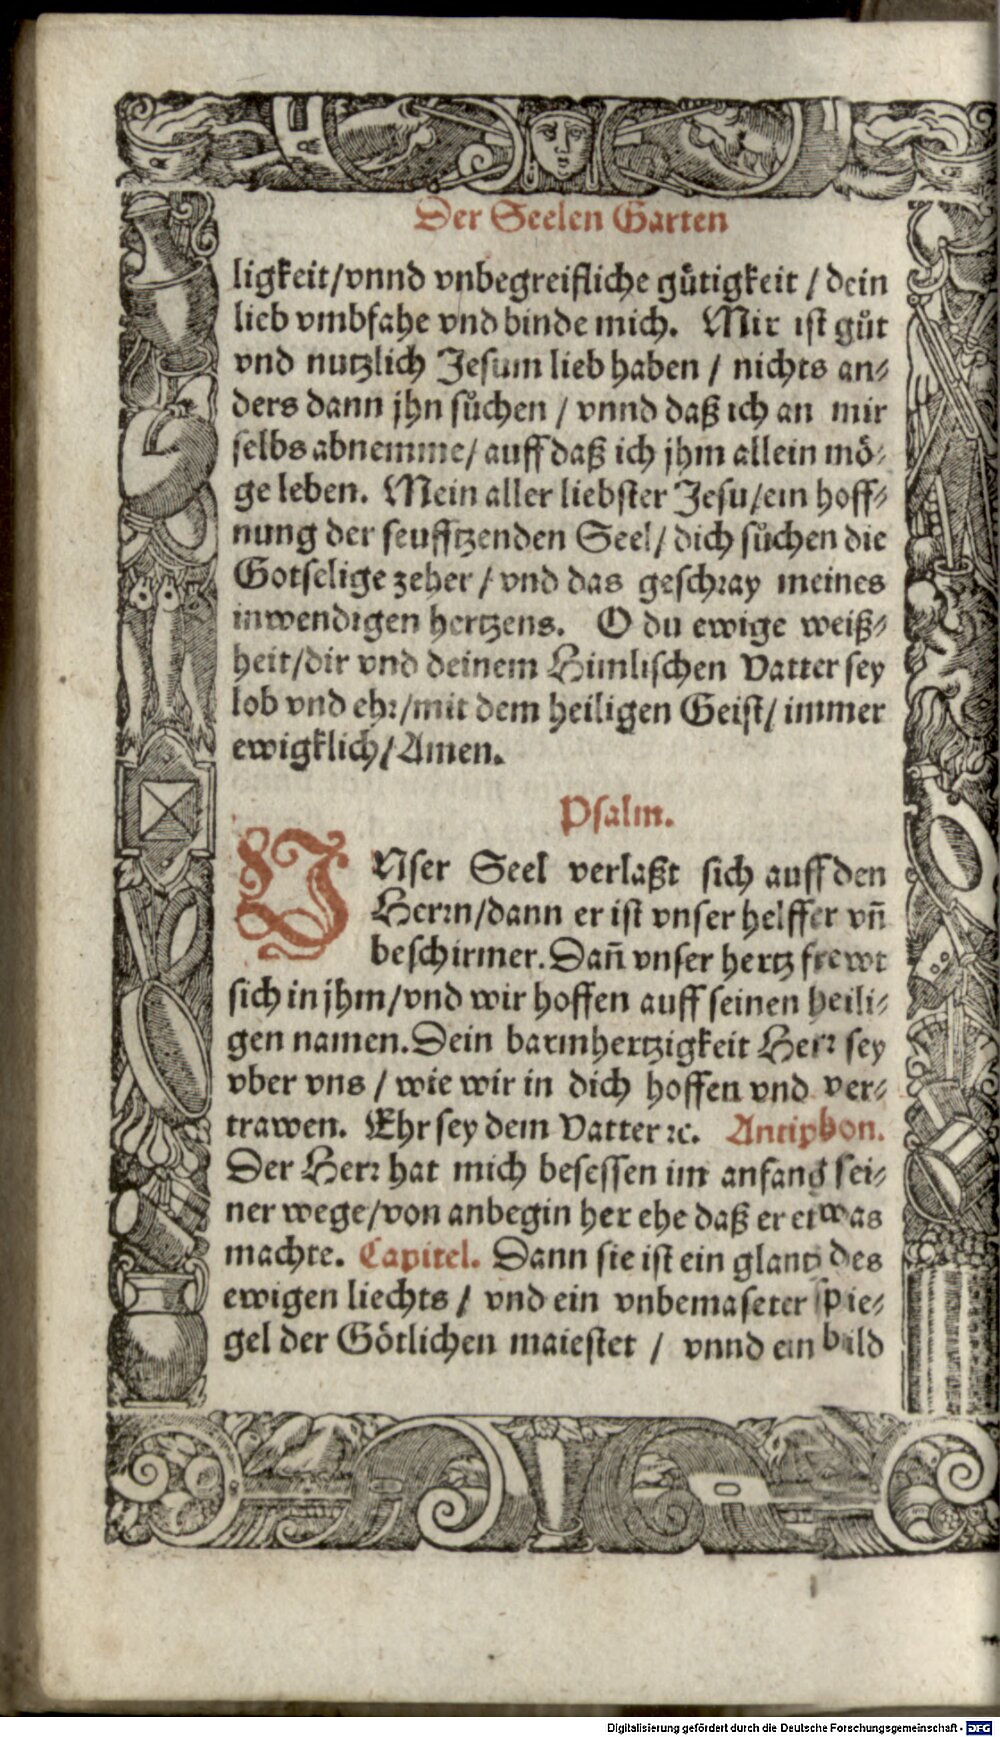 Der Seelen Garten
ligkeit/vnnd vnbegreifliche gůtigkeit / dein
lieb vmbfahe vnd binde mich. Mir ist gůt
vnd nutzlich Jesum lieb haben / nichts an⸗
ders dann jhn sůchen / vnnd daß ich an mir
selbs abnemme/ auff daß ich jhm allein moͤ⸗
ge leben. Mein aller liebster Jesu/ein hoff⸗
nung der seufftzenden Seel/ dich sůchen die
Gotselige zeher / vnd das geschꝛay meines
inwendigen hertzens. O du ewige weiß⸗
heit/dir vnd deinem Himlischen Vatter sey
lob vnd ehꝛ/mit dem heiligen Geist/ immer
ewigklich/Amen.
Psalm.
VNser Seel verlaßt sich auff den
Herꝛn/dann er ist vnser helffer vñ
beschirmer. Dañ vnser hertz frewt
sich in jhm/vnd wir hoffen auff seinen heili⸗
gen namen. Dein barmhertzigkeit Herꝛ sey
vber vns / wie wir in dich hoffen vnd ver⸗
trawen. Ehr sey dem Vatter ꝛc. Antiphon.
Der Herꝛ hat mich besessen im anfang sei⸗
ner wege/von anbegin her ehe daß er etwas
machte. Capitel. Dann sie ist ein glantz des
ewigen liechts / vnd ein vnbemaseter spie⸗
gel der Goͤtlichen maiestet / vnnd ein bild
Digitalisierung gefördert durch die Deutsche Forschungsgemeinschaft - DFG